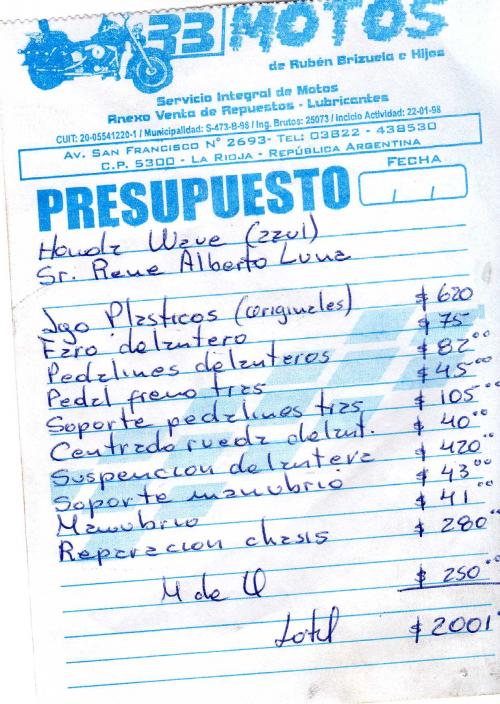 33 MOTOS
de Rubén Brizuela e Hijos
Servicio Integral de Motos
Anexo Venta de Repuestos - Lubricantes
CUIT: 20-05541220-1 / Municipalidad: S-473-B-98 / Ing. Brutos: 25073 / Incicio Actividad: 22-01-98
Av. San Francisco N° 2693- Tel: 03822 - 438530
C.P. 5300 - La Rioja - República Argentina
PRESUPUESTO
FECHA
Honda Wave (azul)
Sr. Rene Alberto Luna
Jgo Plasticos (originales) $ 620
Faro delantero $ 75
Pedalines delanteros $ 82.00
Pedal freno tras $ 45.00
Soporte pedalines tras $ 105.00
Centrado rueda delant. $ 40.00
Suspencion delantera $ 420.00
Soporte manubrio $ 43.00
Manubrio $ 41.00
Reparacion chasis $ 280.00
M de O $ 250.00
Total $ 2001